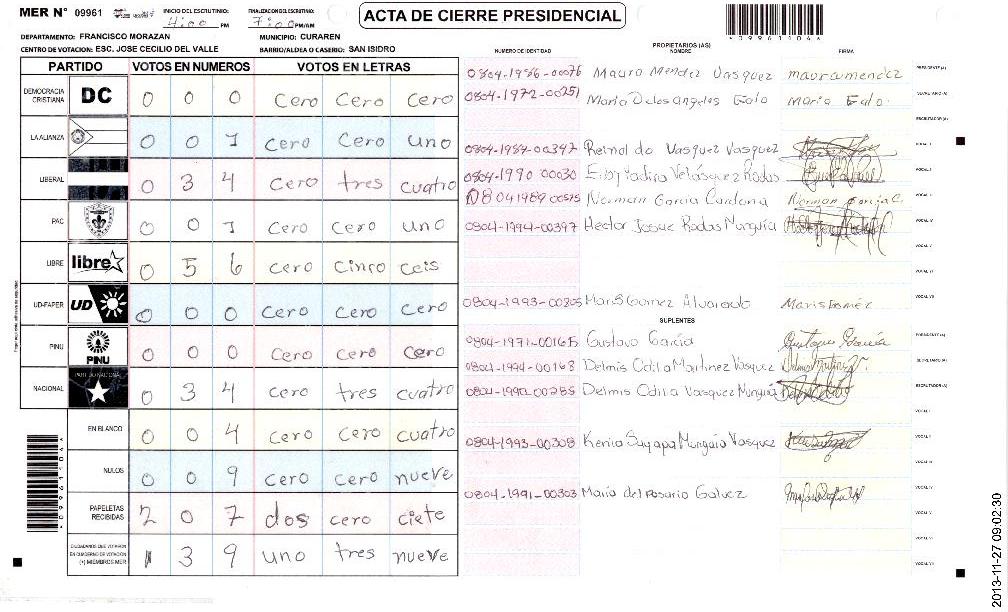 MER N° 09961 INICIO DEL ESCRUTINIO: 4:00 PM FINALIZACION DEL ESCRUTINIO: 7:00 PM/AM ACTA DE CIERRE PRESIDENCIAL
*09961104*
DEPARTAMENTO: FRANCISCO MORAZAN MUNICIPIO: CURAREN
CENTRO DE VOTACION: ESC. JOSE CECILIO DEL VALLE BARRIO/ALDEA O CASERIO: SAN ISIDRO
PARTIDO VOTOS EN NUMEROS VOTOS EN LETRAS
DEMOCRACIA CRISTIANA DC 0 0 0 Cero Cero Cero
LA ALIANZA 0 0 1 Cero Cero uno
LIBERAL 0 3 4 Cero tres cuatro
PAC 0 0 1 Cero Cero uno
LIBRE libre 0 5 6 Cero Cinco ceis
UD-FAPER UD 0 0 0 Cero Cero Cero
PINU PINU 0 0 0 Cero Cero Cero
NACIONAL PARTIDO NACIONAL 0 3 4 Cero tres cuatro
EN BLANCO 0 0 4 Cero Cero cuatro
NULOS 0 0 9 Cero Cero nueve
PAPELETAS RECIBIDAS 2 0 7 dos cero ciete
CIUDADANOS QUE VOTARON EN CUADERNO DE VOTACION (+) MIEMBROS MER 1 3 9 uno tres nueve
PROPIETARIOS (AS)
NUMERO DE IDENTIDAD NOMBRE FIRMA
0804-1986-00076 Mauro Mendez Vasquez mauro mendez PRESIDENTE (A)
0804-1972-00251 Maria Delosangeles Galo Maria Galo SECRETARIO (A)
ESCRUTADOR (A)
0804-1987-00347 Reinaldo Vasquez Vasquez VOCAL I
0804-1990 00030 Velásquez Rodas VOCAL II
0804 1989 00575 Norman Garcia Cardona Norman Garcia C. VOCAL III
0804-1994-00397 Hector Josue Rodas Murguia VOCAL IV
VOCAL V
VOCAL VI
0804-1993-00305 Maris Gomez Alvarado Maris Gomez VOCAL VII
SUPLENTES
0804-1971-00165 Gustavo Garcia Gustavo Garcia PRESIDENTE (A)
0804-1994-00198 Delmis Odila Martinez Vasquez SECRETARIO (A)
0804-1990-00285 Delmis Odila Vasquez Murguia ESCRUTADOR (A)
VOCAL I
0804-1993-00308 Kenia Suyapa Murguia Vasquez VOCAL II
VOCAL III
0804-1991-00303 Maria del rosario Galvez VOCAL IV
VOCAL V
VOCAL VI
VOCAL VII
*09961104*
2013-11-27 09:02:30